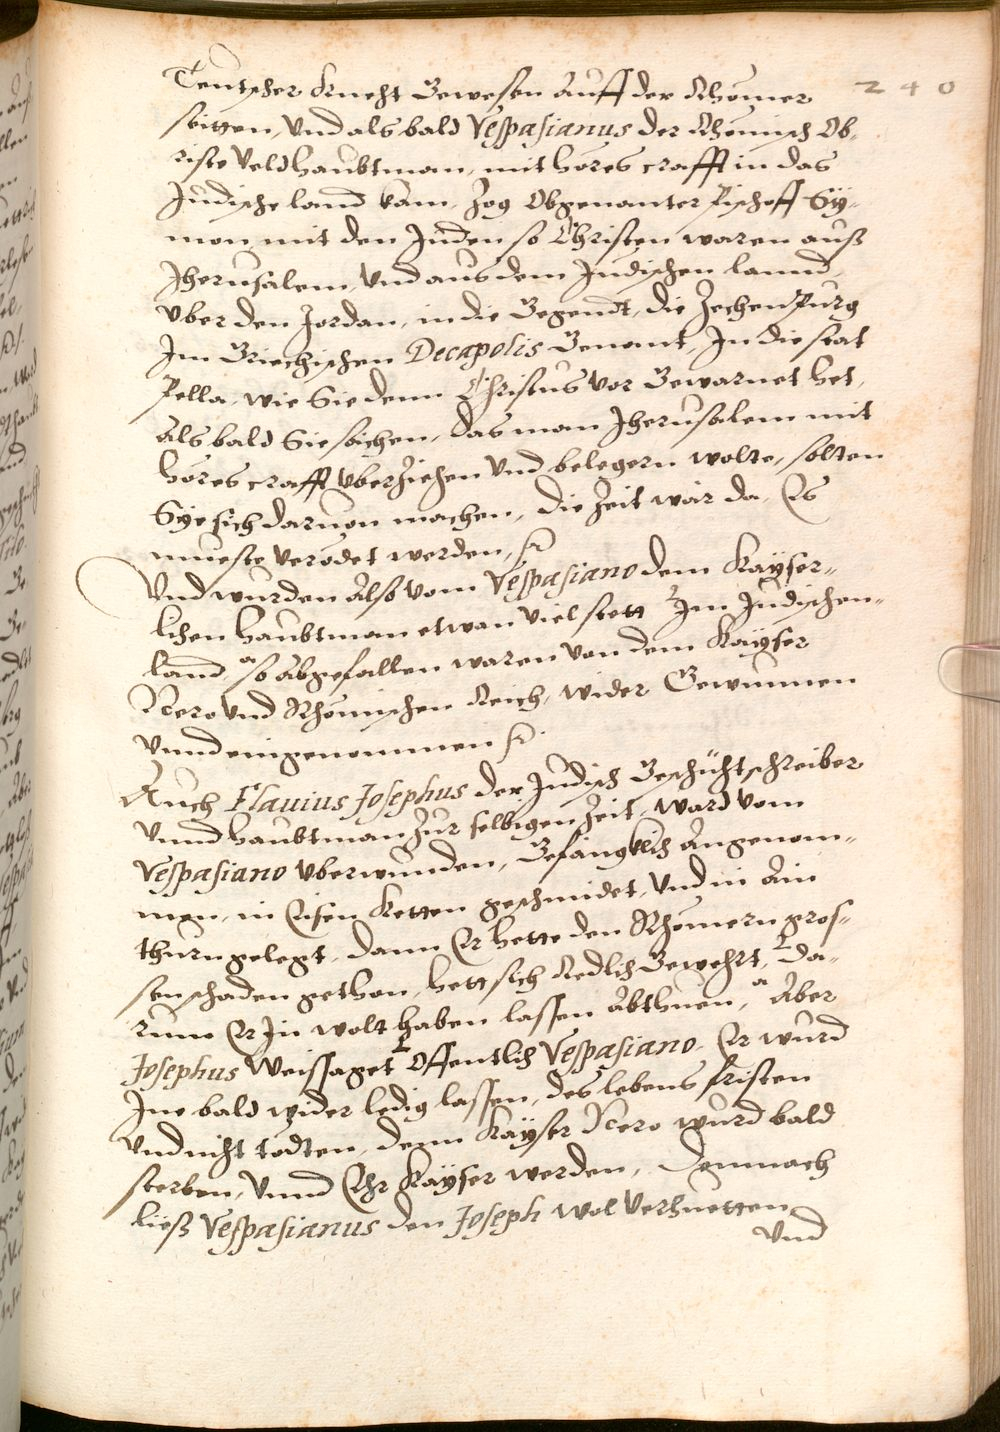 240
Teutscher Knecht Gewesen Auff der Rhömer
seitten, Und als bald Vespasianus der Rhömisch Ob-
riste Veldhaubtman, mit hörescrafft in das
Judische land kam, Zog Obgenanter Pischoff Sy-
mon, mit den Juden so Christen waren auß
Jherusalem, Und aus dem Judischen lannd,
Uber den Jordan, in die Gegendt, die Zechen Purg
Im Griechischen Decapolis Genant, In die stat
Pella, wie Sie denn Christus vor Gewarnet het,
Als bald Sie sächen, das man Jherusalem mit
hörescrafft Uberziehen Und belegern wolte, solten
Sye sich daruon machen, die Zeit wär da, Es
mueste Verödet werden,
Und wurden Also vom Vespasiano dem Kayser-
lichen haubtman etwan viel stett Im Judischen-
land so Abgefallen waren von dem Kayser
Nero Und Rhömischen Reich, wider Gewunnen
Unnd eingenommen
Auch Flauius Josephus der Judisch Geschichtschreiber
Unnd haubtman Zur selbigen Zeit, ward vom
Vespasiano Uberwunden, Gefängklich Angenom-
men, in Eisen Ketten geschmidet, Und in Ain
thurn gelegt, dann Er hette den Rhömern gros-
sen schaden gethon, hett sich Redlich Gewehrt, Da-
rumb Er In wolt haben lassen Abthuen, Aber
Josephus Weissaget Offentlich Vespasiano, Er wurd
Ine bald wider ledig lassen, des lebens fristen
Und nicht tödten, denn Kayser Nero wurd bald
sterben, Unnd Ehr Kayser werden, Demnach
ließ Vespasianus den Joseph wol Verhuetten
Und